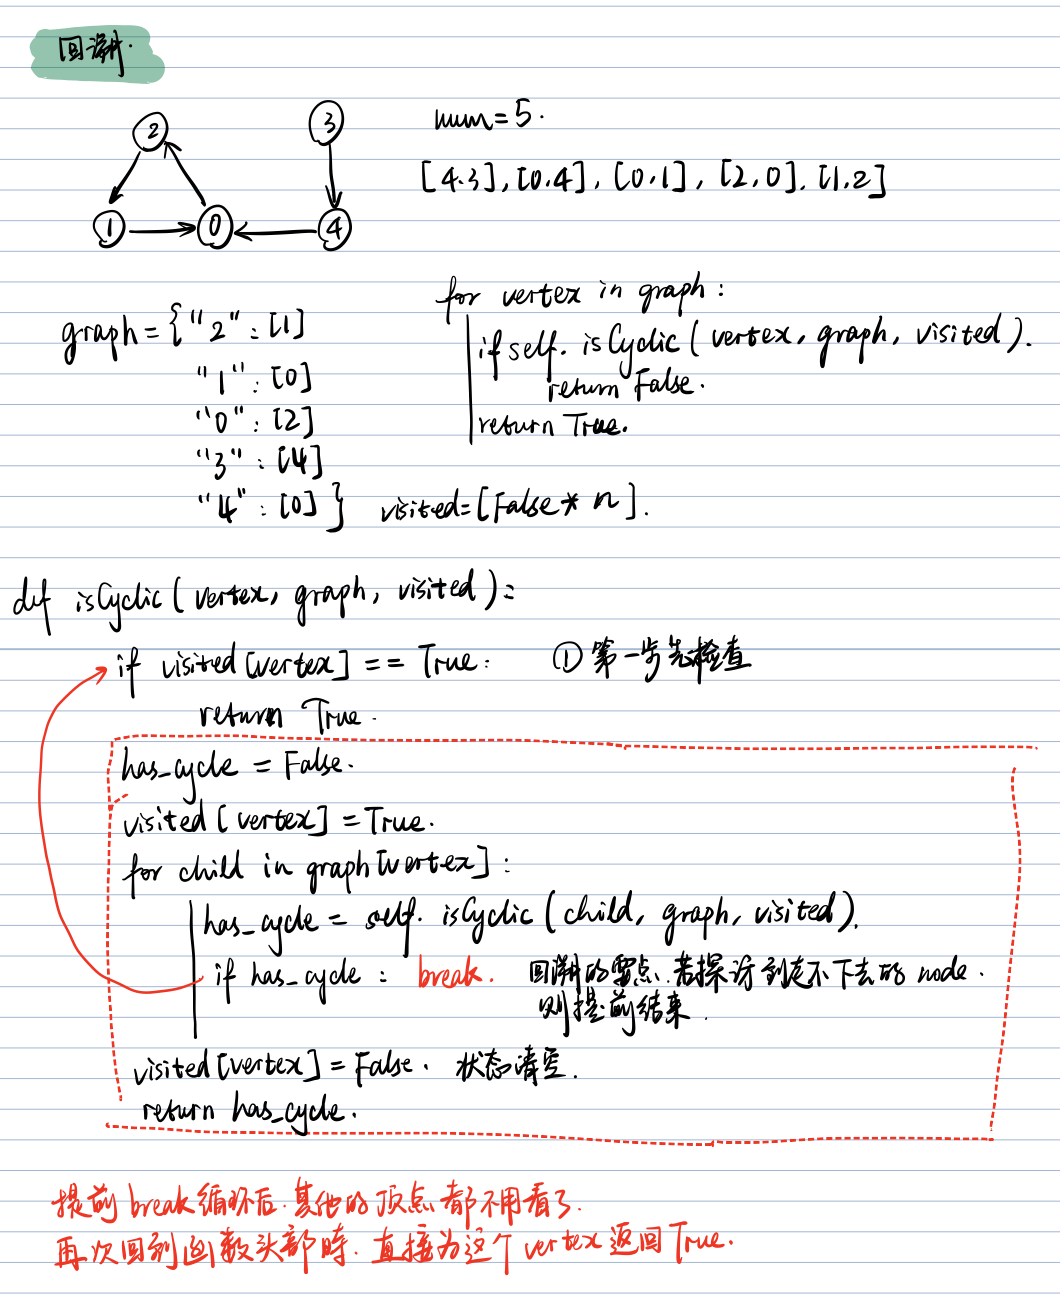 回溯.
2
3
1
0
4
num=5.
[4.3], [0.4], [0,1], [2,0]. [1,2]
graph={"2":[1]
"1":[0]
"0":[2]
"3":[4]
"4":[0]}
for vertex in graph:
if self. isCyclic(vertex, graph, visited).
return False.
return True.
visited=[False * n].
def isCyclic(vertex, graph, visited):
if visited[vertex] == True: ① 第一步先检查
return True.
has_cycle = False.
visited[vertex]=True.
for child in graph[vertex]:
has_cycle = self. isCyclic(child, graph, visited).
if has_cycle: break. 回溯的要点.若探访到走不下去的 node.
则提前结束.
visited[vertex]=False. 状态清空.
return has_cycle.
提前 break 循环后.其他的顶点都不用看了.
再次回到函数头部時.直接为这个 vertex 返回 True.